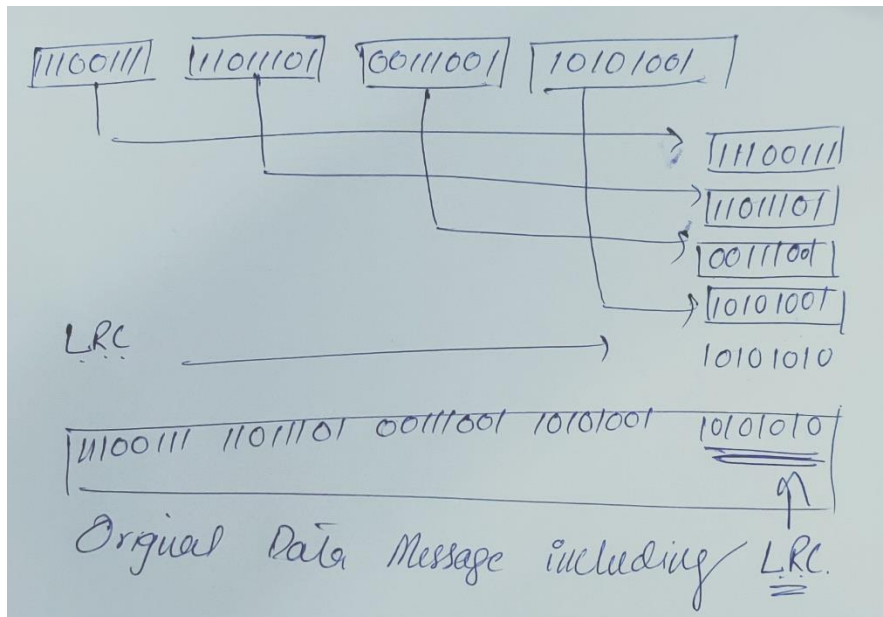 11100111 11011101 00111001 10101001
11100111
11011101
00111001
10101001
LRC 10101010
11100111 11011101 00111001 10101001 10101010
Orignal Data Message including LRC.